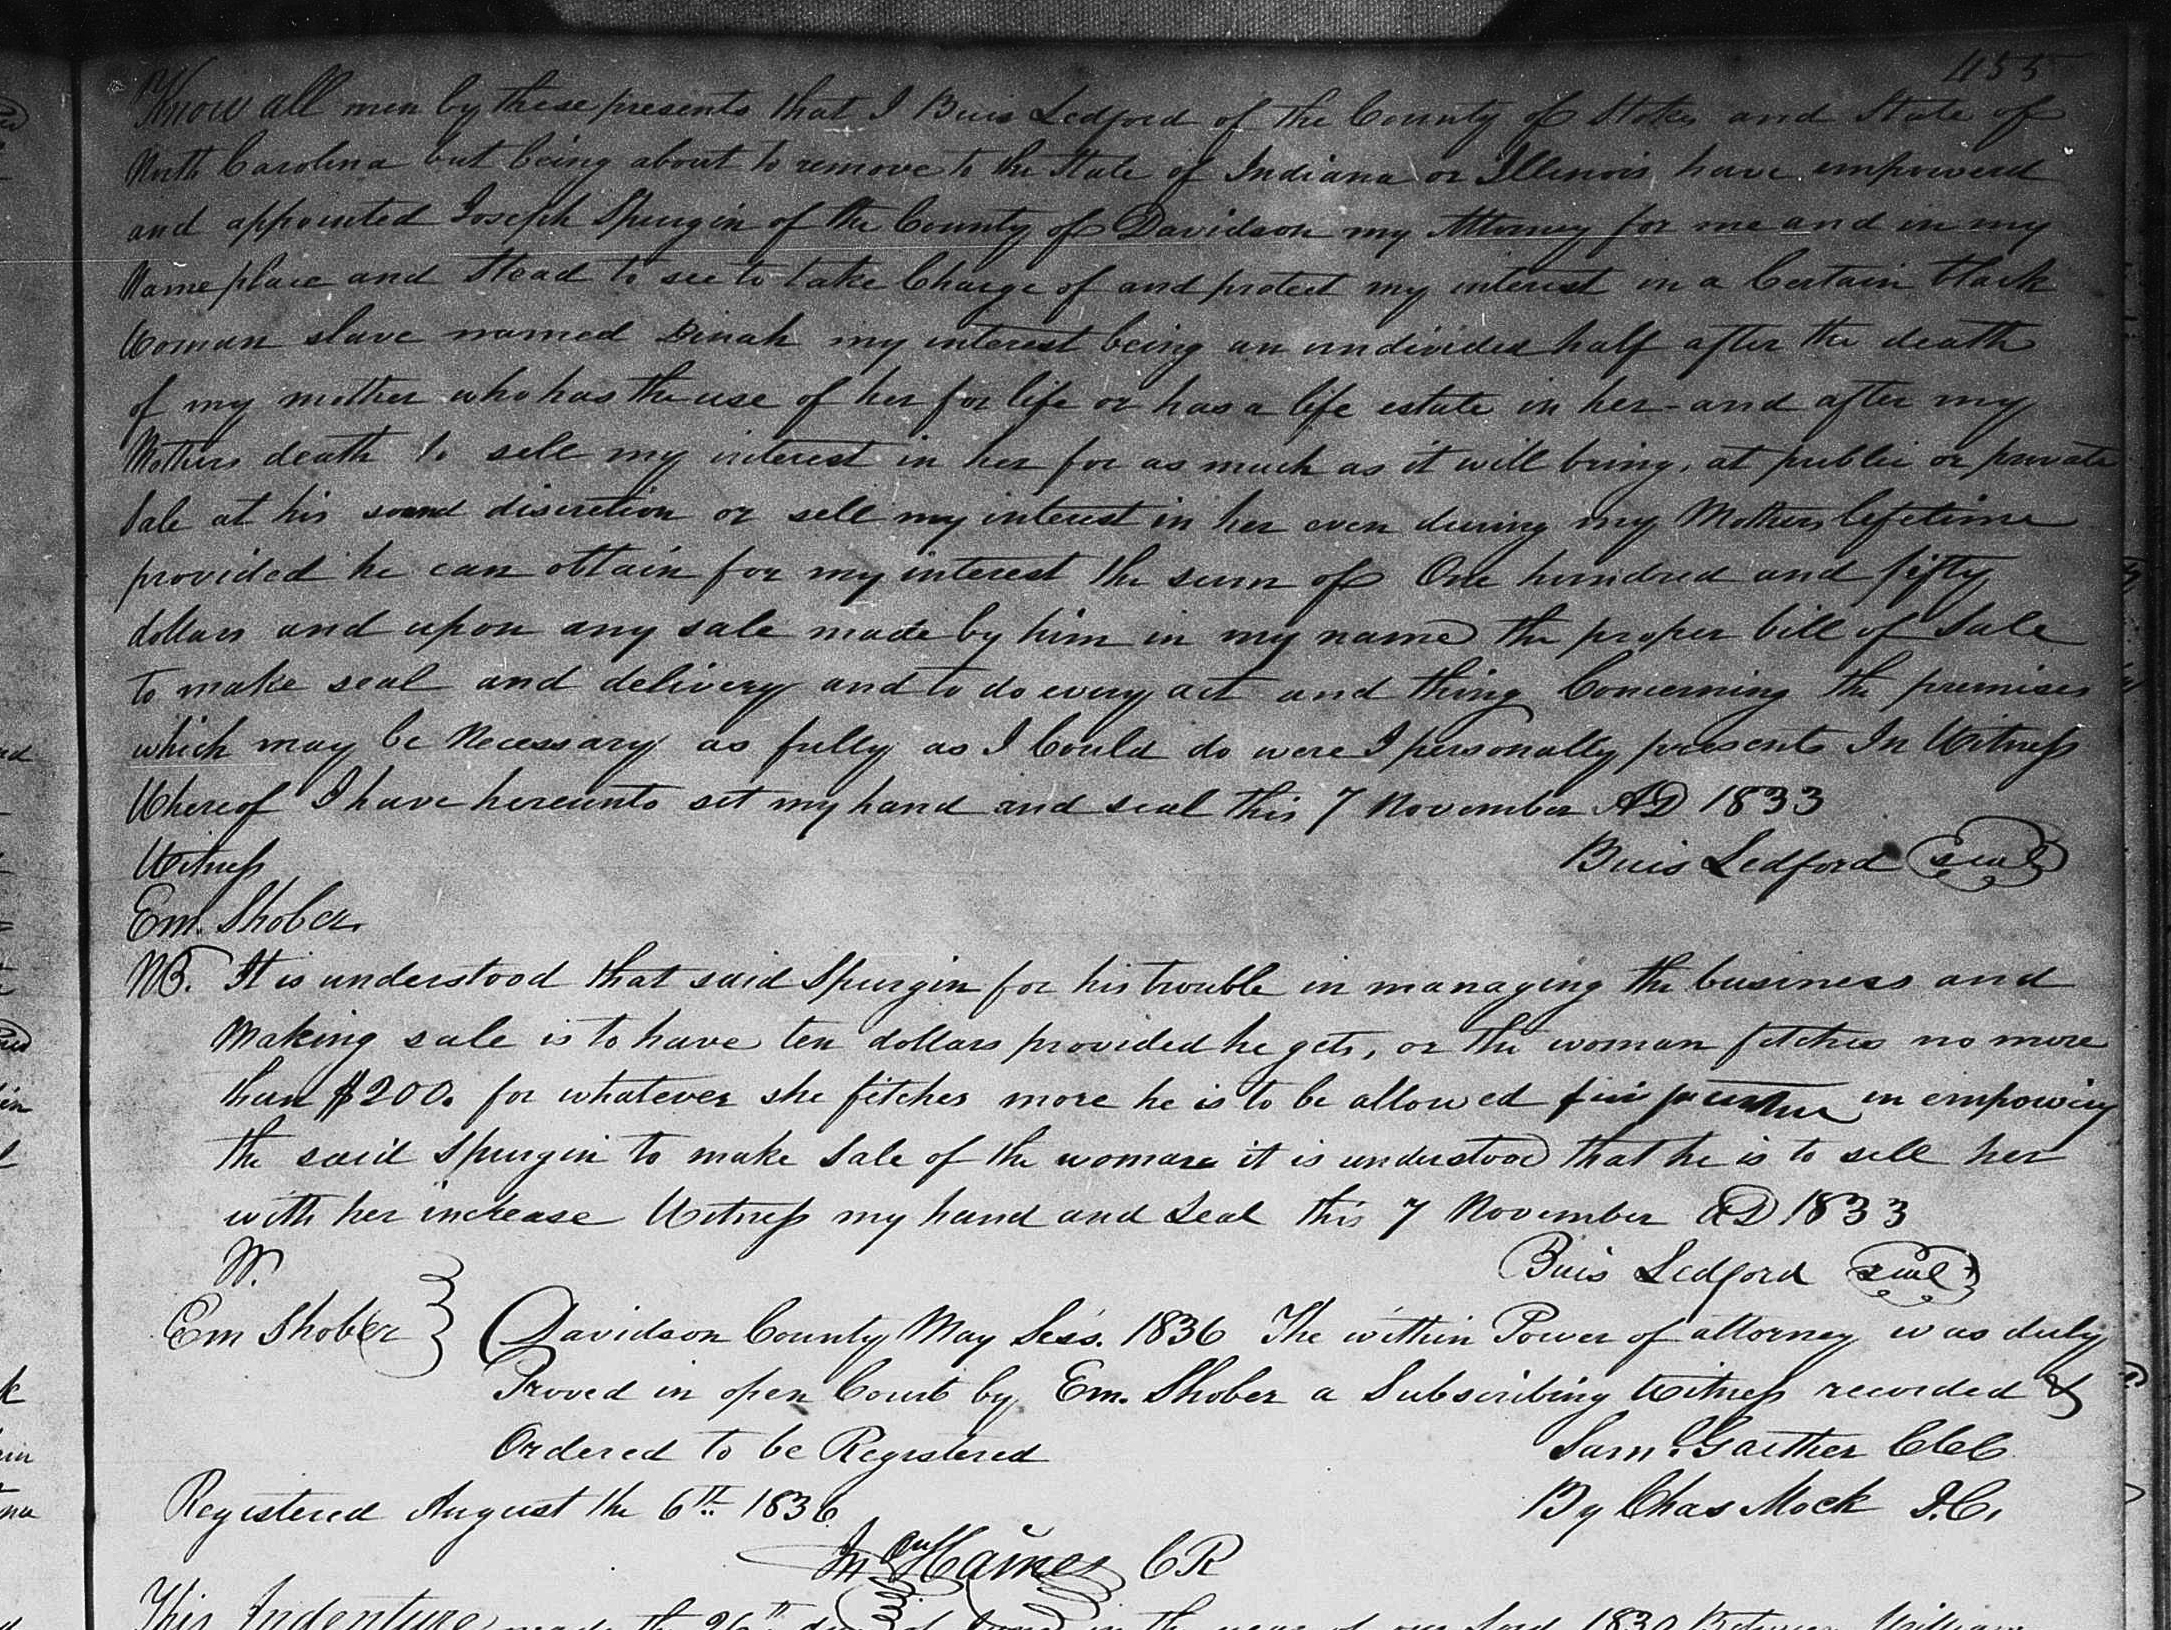 455
Know all men by these presents that I Buis Ledford of the County of Stokes and State of
North Carolina but being about to remove to the State of Indiana or Illinois have empowered
and appointed Joseph Spurgin of the County of Davidson my Attorney for me and in my
Name place and Stead to see to take Charge of and protect my interest in a Certain black
Woman slave named Dinah my interest being an undivided half after the death
of my mother who has the use of her for life or has a life estate in her - and after my
Mothers death to sell my interest in her for as much as it will bring, at public or private
Sale at his sound discretion or sell my interest in her even during my Mothers lifetime
provided he can obtain for my interest the sum of One hundred and fifty
dollars and upon any sale made by him in my name the proper bill of Sale
to make seal and delivery and to do every act and thing Concerning the premises
which may be Necessary as fully as I Could do were I personally presents In Witness
Whereof I have hereunto set my hand and seal this 7 November AD 1833
Witness Buis Ledford seal
Em. Shober.
NB. It is understood that said Spurgin for his trouble in managing the business and
Making sale is to have ten dollars provided he gets, or the woman fetches no more
than $200. for whatever she fetches more he is to be allowed in empowering
the said Spurgin to make Sale of the woman it is understood that he is to sell her
with her increase Witness my hand and Seal this 7 November AD 1833
W. Buis Ledford seal
Em Shober Davidson County May Sess. 1836 The within Power of attorney was duly
Proved in open Court by Em. Shober a Subscribing Witness recorded &
Ordered to be Registered Saml. Gaither CCC
Registered August the 6th 1836 By Chas Mock D.C.
Haines CR
This Indenture made the 26th day of in the year of our Lord Between William